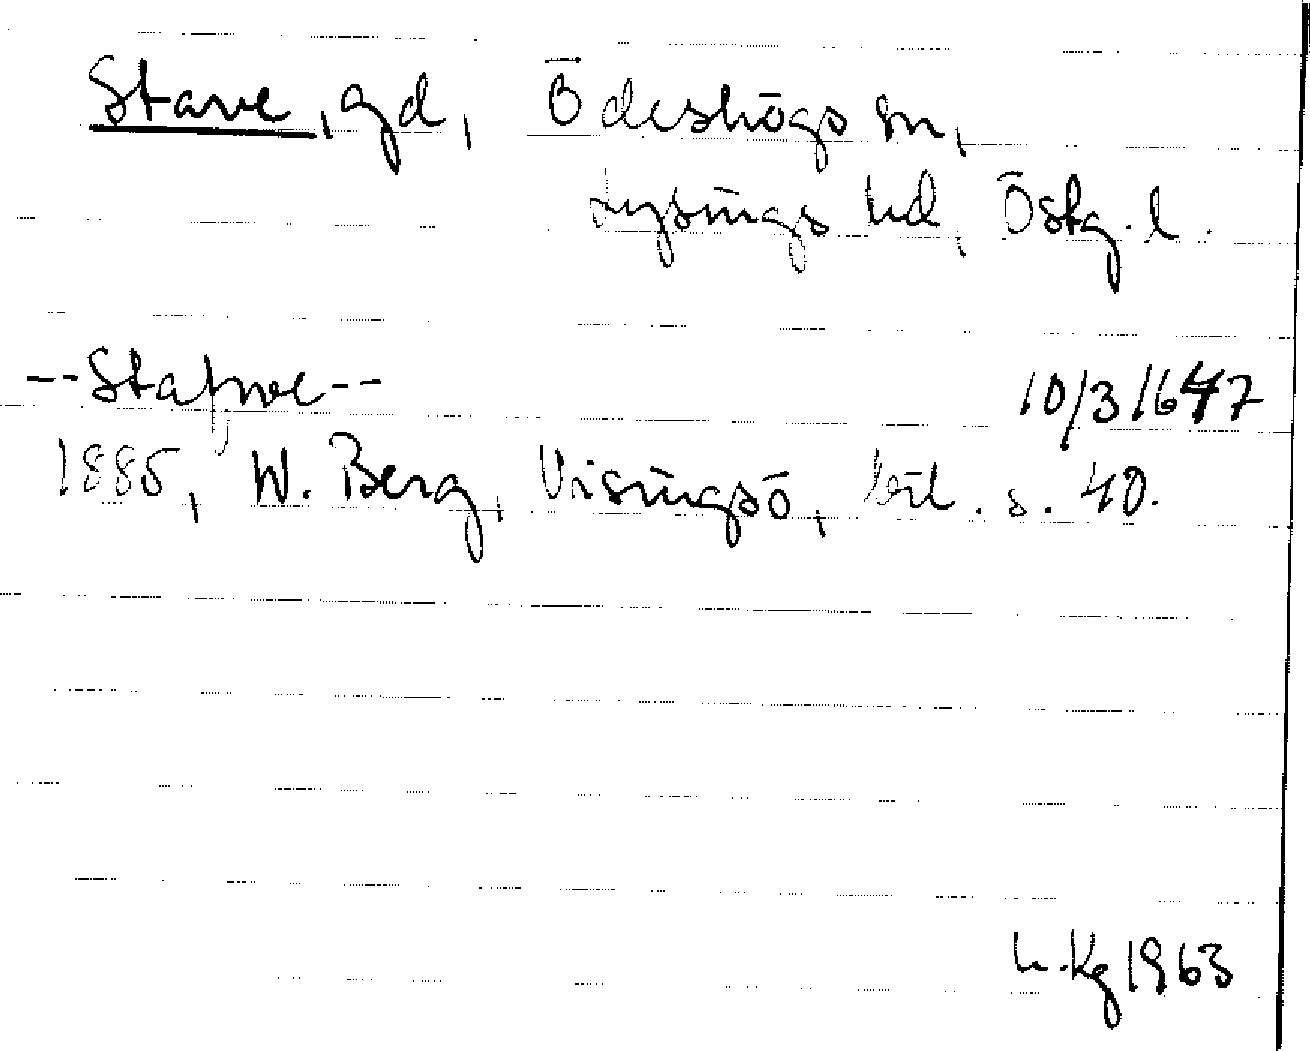 Stave, gd, Ödeshögs sn,
Lysings hd, Östg. l.
--Stafwe-- 10/3 1647
1885, W. Berg, Visingsö, bil. s. 40.
Kg 1963